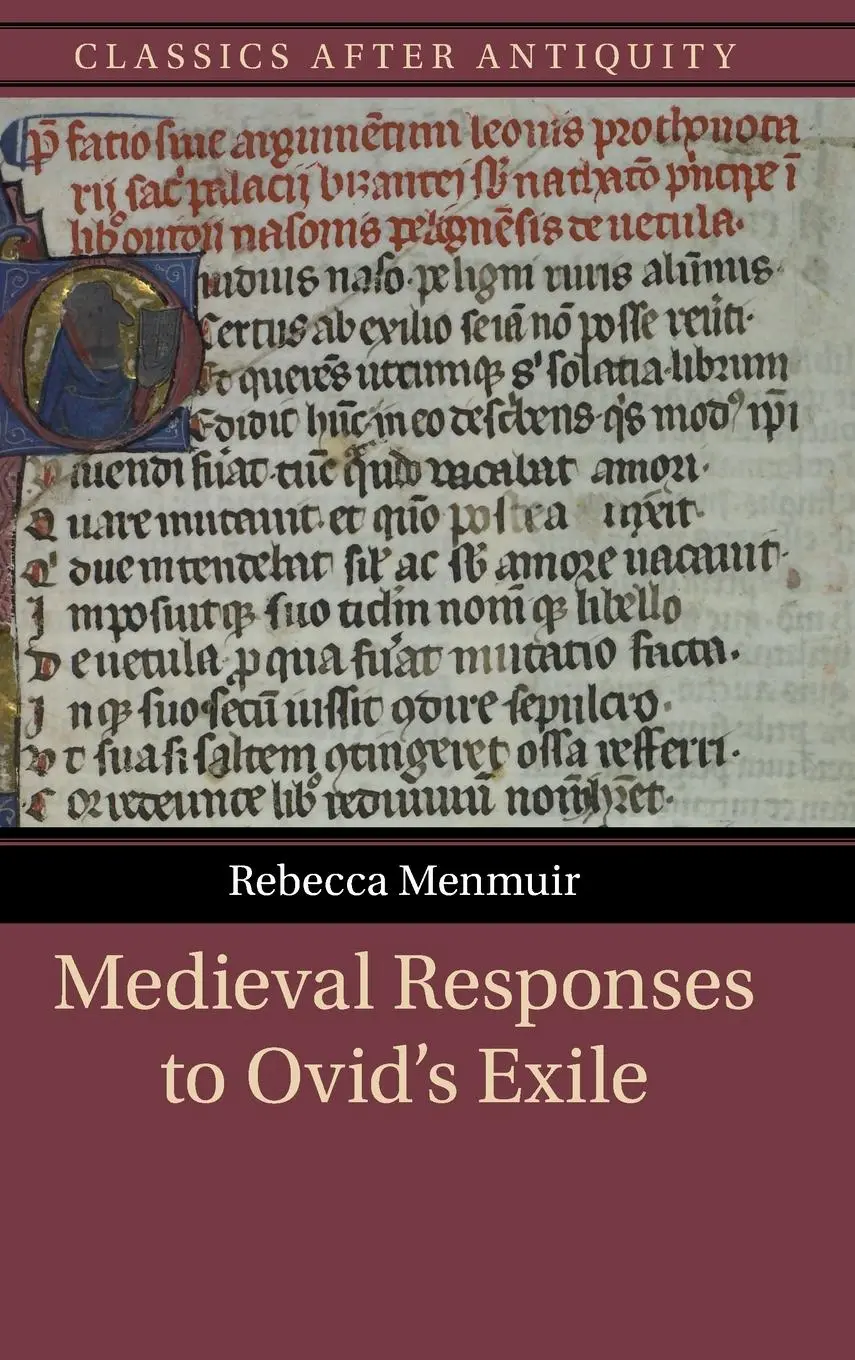 CLASSICS AFTER ANTIQUITY
p̄fatio siue argumētum leonis prothonota
rij sac͛ palacij bizantej sb̄ nathatō pͥncipe ī
lib ouidii nasonis pelignēsis de uetula.
Ouidius naso. peligni ruris alūnus.
Certus ab exilio se iā nō posse reuͥti.
Et querēs utcumqꝫ sͥ solatia. librum
Edidit hūc. in eo descͥbens. qͥs modꝰ ip̄i
Viuendi fuͥat. tūc qn̄do uacabat amori.
Quare mutauit. et qūo postea uixit.
Qͥdue intendebat sil̄ ac sb̄ amore uacauit.
Imposuitqꝫ suo titl̄m nom̄qꝫ libello
De uetula ꝓ qua fuͥat mutatio facta.
Inqꝫ suo secū iussit ꝯdire sepulcro.
Vt sua si saltem ꝯtingeret ossa refferri.
redeunte libͦ rediuiuū nom̄ hr̄et.
Rebecca Menmuir
Medieval Responses
to Ovid’s Exile